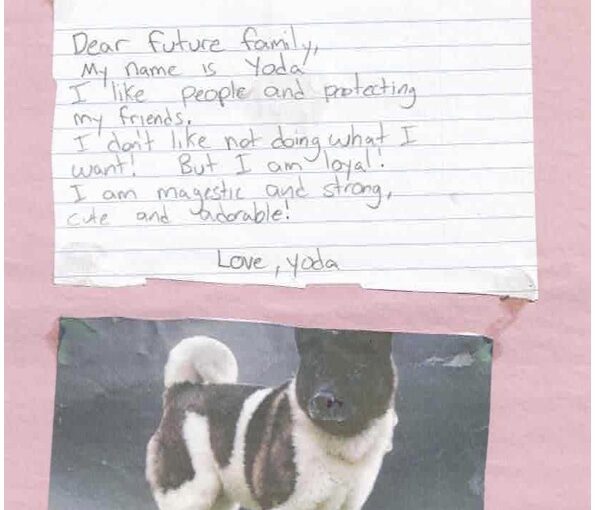 Dear future family,
My name is Yoda
I like people and protecting
my friends.
I don't like not doing what I
want! But I am loyal!
I am magestic and strong,
cute and adorable!
Love, yoda